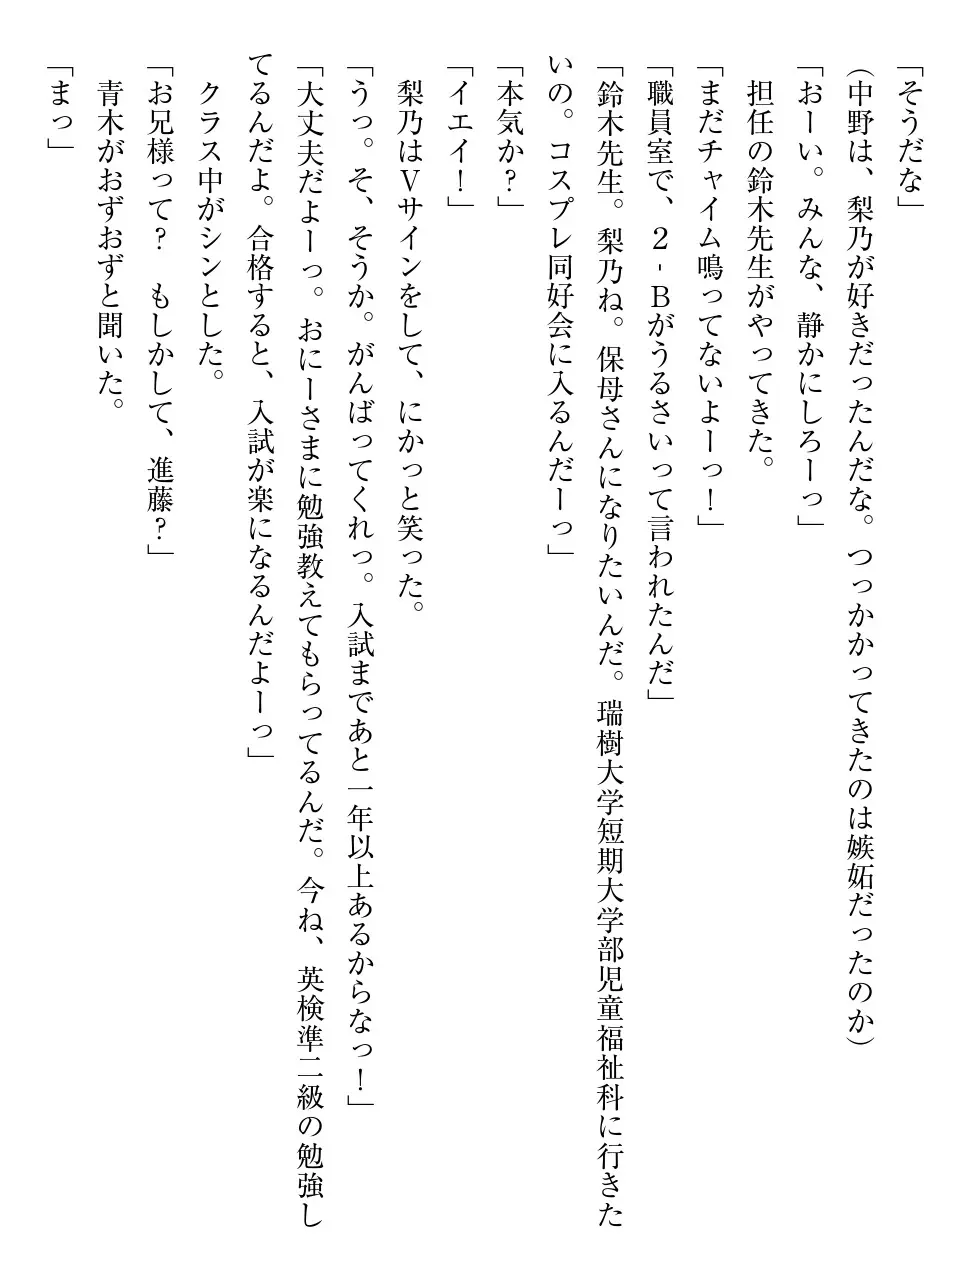 「そうだな」
（中野は、梨乃が好きだったんだな。つっかかってきたのは嫉妬だったのか）
「おーい。みんな、静かにしろーっ」
　担任の鈴木先生がやってきた。
「まだチャイム鳴ってないよーっ！」
「職員室で、２‐Ｂがうるさいって言われたんだ」
「鈴木先生。梨乃ね。保母さんになりたいんだ。瑞樹大学短期大学部児童福祉科に行きた
いの。コスプレ同好会に入るんだーっ」
「本気か？」
「イエイ！」
　梨乃はＶサインをして、にかっと笑った。
「うっ。そ、そうか。がんばってくれっ。入試まであと一年以上あるからなっ！」
「大丈夫だよーっ。おにーさまに勉強教えてもらってるんだ。今ね、英検準二級の勉強し
てるんだよ。合格すると、入試が楽になるんだよーっ」
　クラス中がシンとした。
「お兄様って？　もしかして、進藤？」
　青木がおずおずと聞いた。
「まっ」